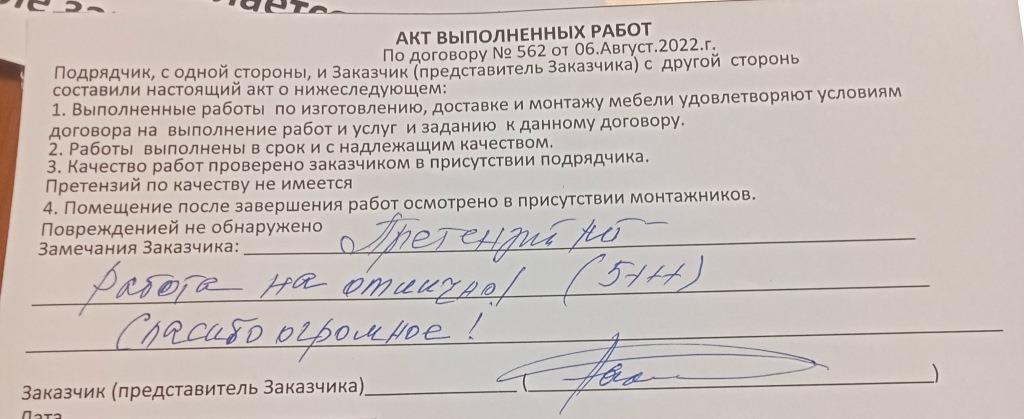 АКТ ВЫПОЛНЕННЫХ РАБОТ
По договору № 562 от 06.Август.2022.г.
Подрядчик, с одной стороны, и Заказчик (представитель Заказчика) с другой сторонь
составили настоящий акт о нижеследующем:
1. Выполненные работы по изготовлению, доставке и монтажу мебели удовлетворяют условиям
договора на выполнение работ и услуг и заданию к данному договору.
2. Работы выполнены в срок и с надлежащим качеством.
3. Качество работ проверено заказчиком в присутствии подрядчика.
Претензий по качеству не имеется
4. Помещение после завершения работ осмотрено в присутствии монтажников.
Поврежденией не обнаружено
Замечания Заказчика: Претензий нет
Работа на отлично! (5+++)
Спасибо огромное!
Заказчик (представитель Заказчика) ( )
Дата